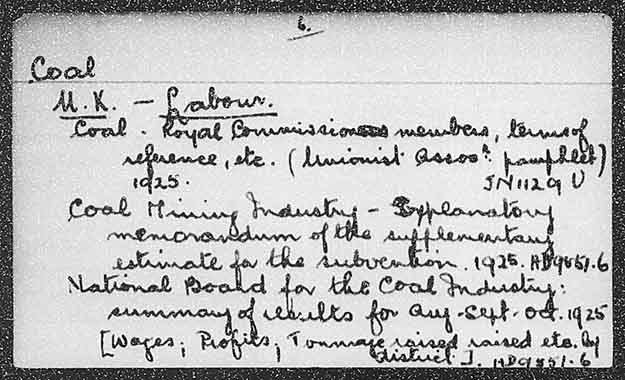 6.
Coal
U.K. - Labour.
Coal. Royal Commission members, terms of
reference, etc. (Unionist Assocn. pamphlet)
1925. JN1129 U
Coal Mining Industry - Explanatory
memorandum of the supplementary
estimate for the subvention. 1925. HD9551.6
National Board for the Coal Industry:
summary of results for Aug-Sept-Oct. 1925
[Wages; Profits; Tonnage raised raised etc. by
district]. HD9551.6